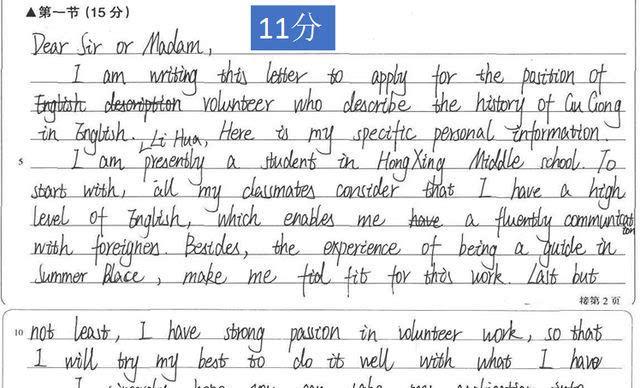 ▲第一节(15分)
11分
Dear Sir or Madam,
I am writing this letter to apply for the position of
English description volunteer who describe the history of Gu Gong
in English. Here is my specific personal information.
Li Hua,
5 I am presently a student in HongXing Middle school. To
start with, all my classmates consider that I have a high
level of English, which enables me have a fluently communication
with foreigners. Besides, the experience of being a guide in
Summer Place, make me fit for this work. Last but
接第2页
10 not least, I have strong passion in volunteer work, so that
I will try my best to do it well with what I have